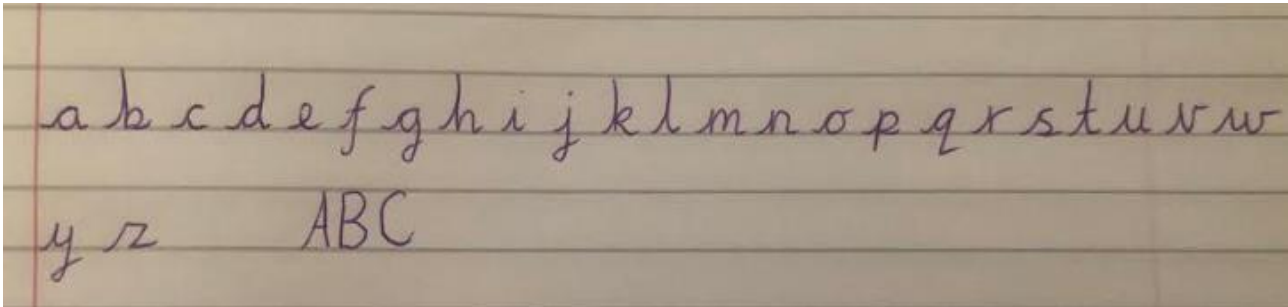 a b c d e f g h i j k l m n o p q r s t u v w
y z ABC